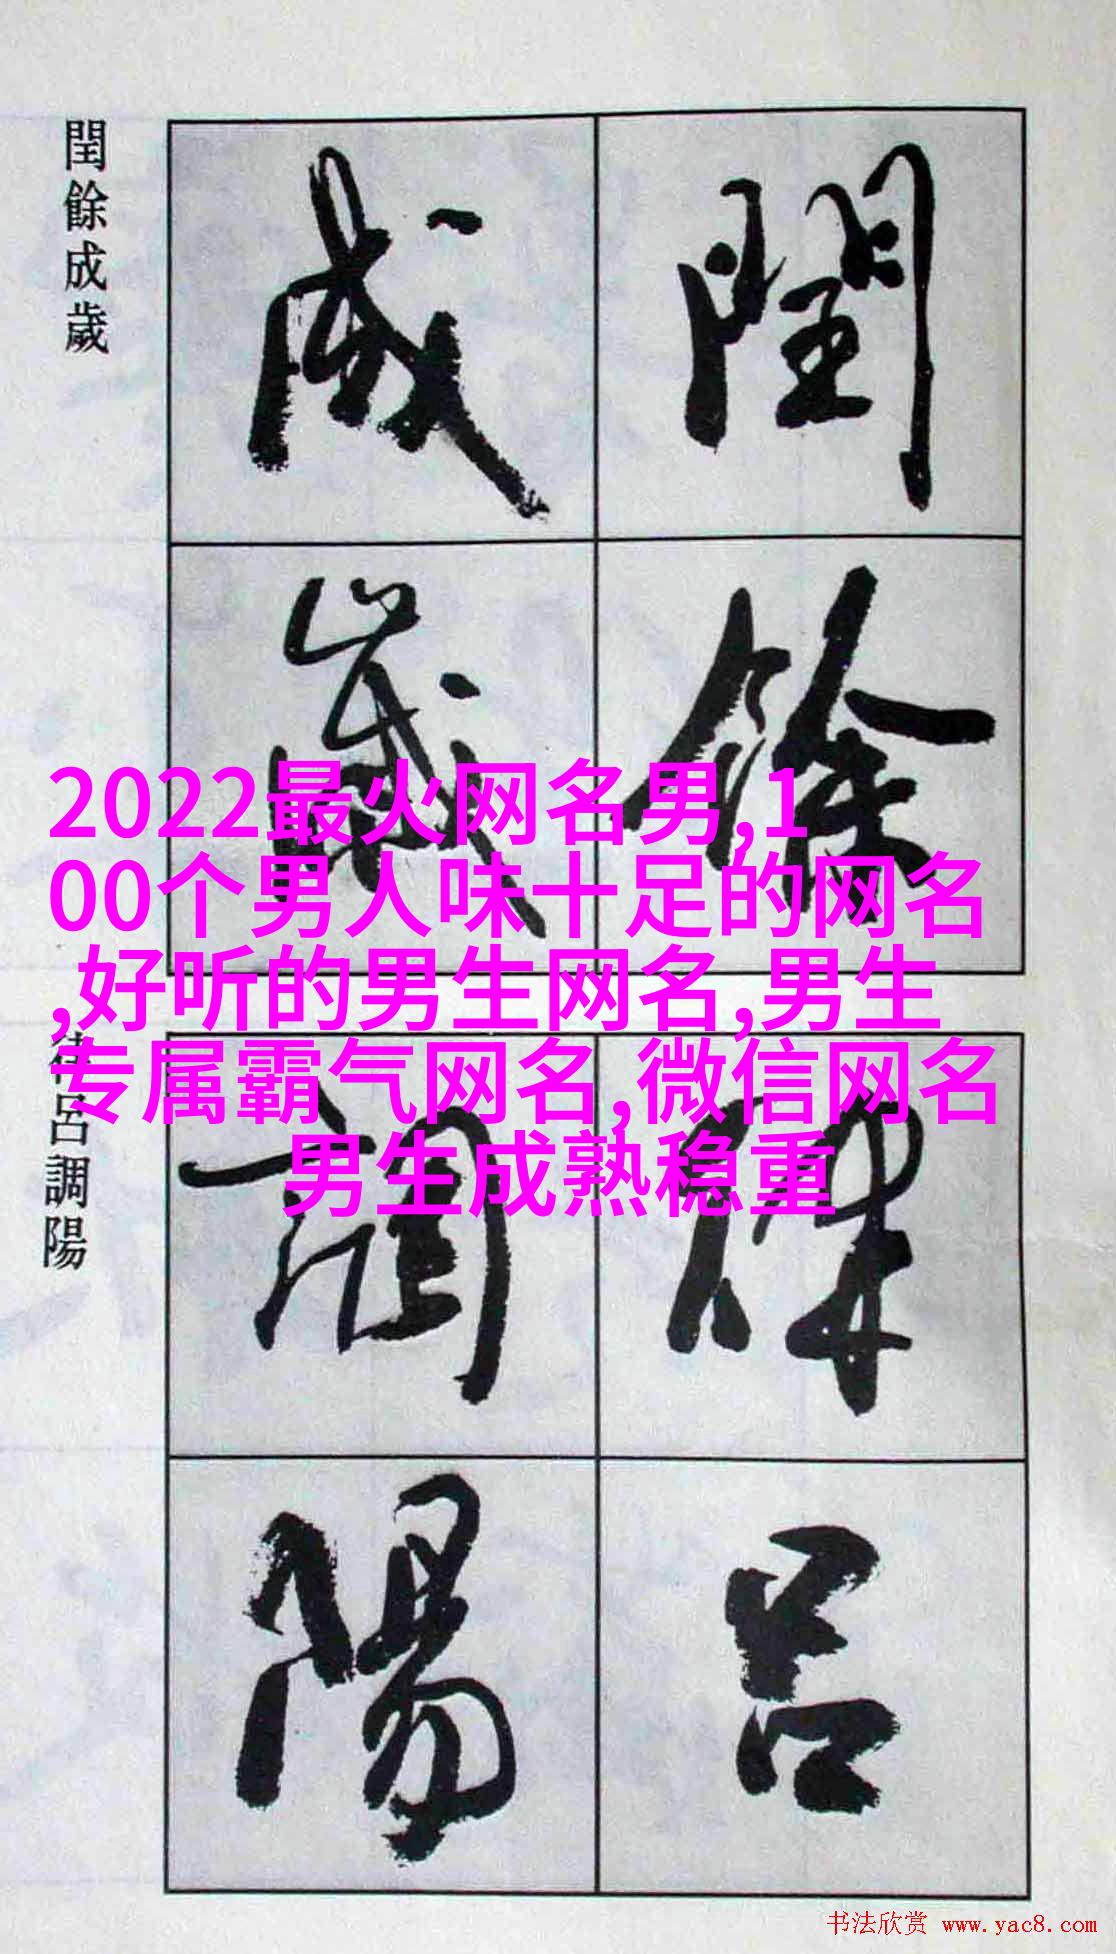 閏餘成歲
閏餘
成歲
2022最火网名男,1
00个男人味十足的网名
,好听的男生网名,男生
专属霸气网名,微信网名
男生成熟稳重
律呂調陽
律呂
調陽
书法欣赏 www.yac8.com